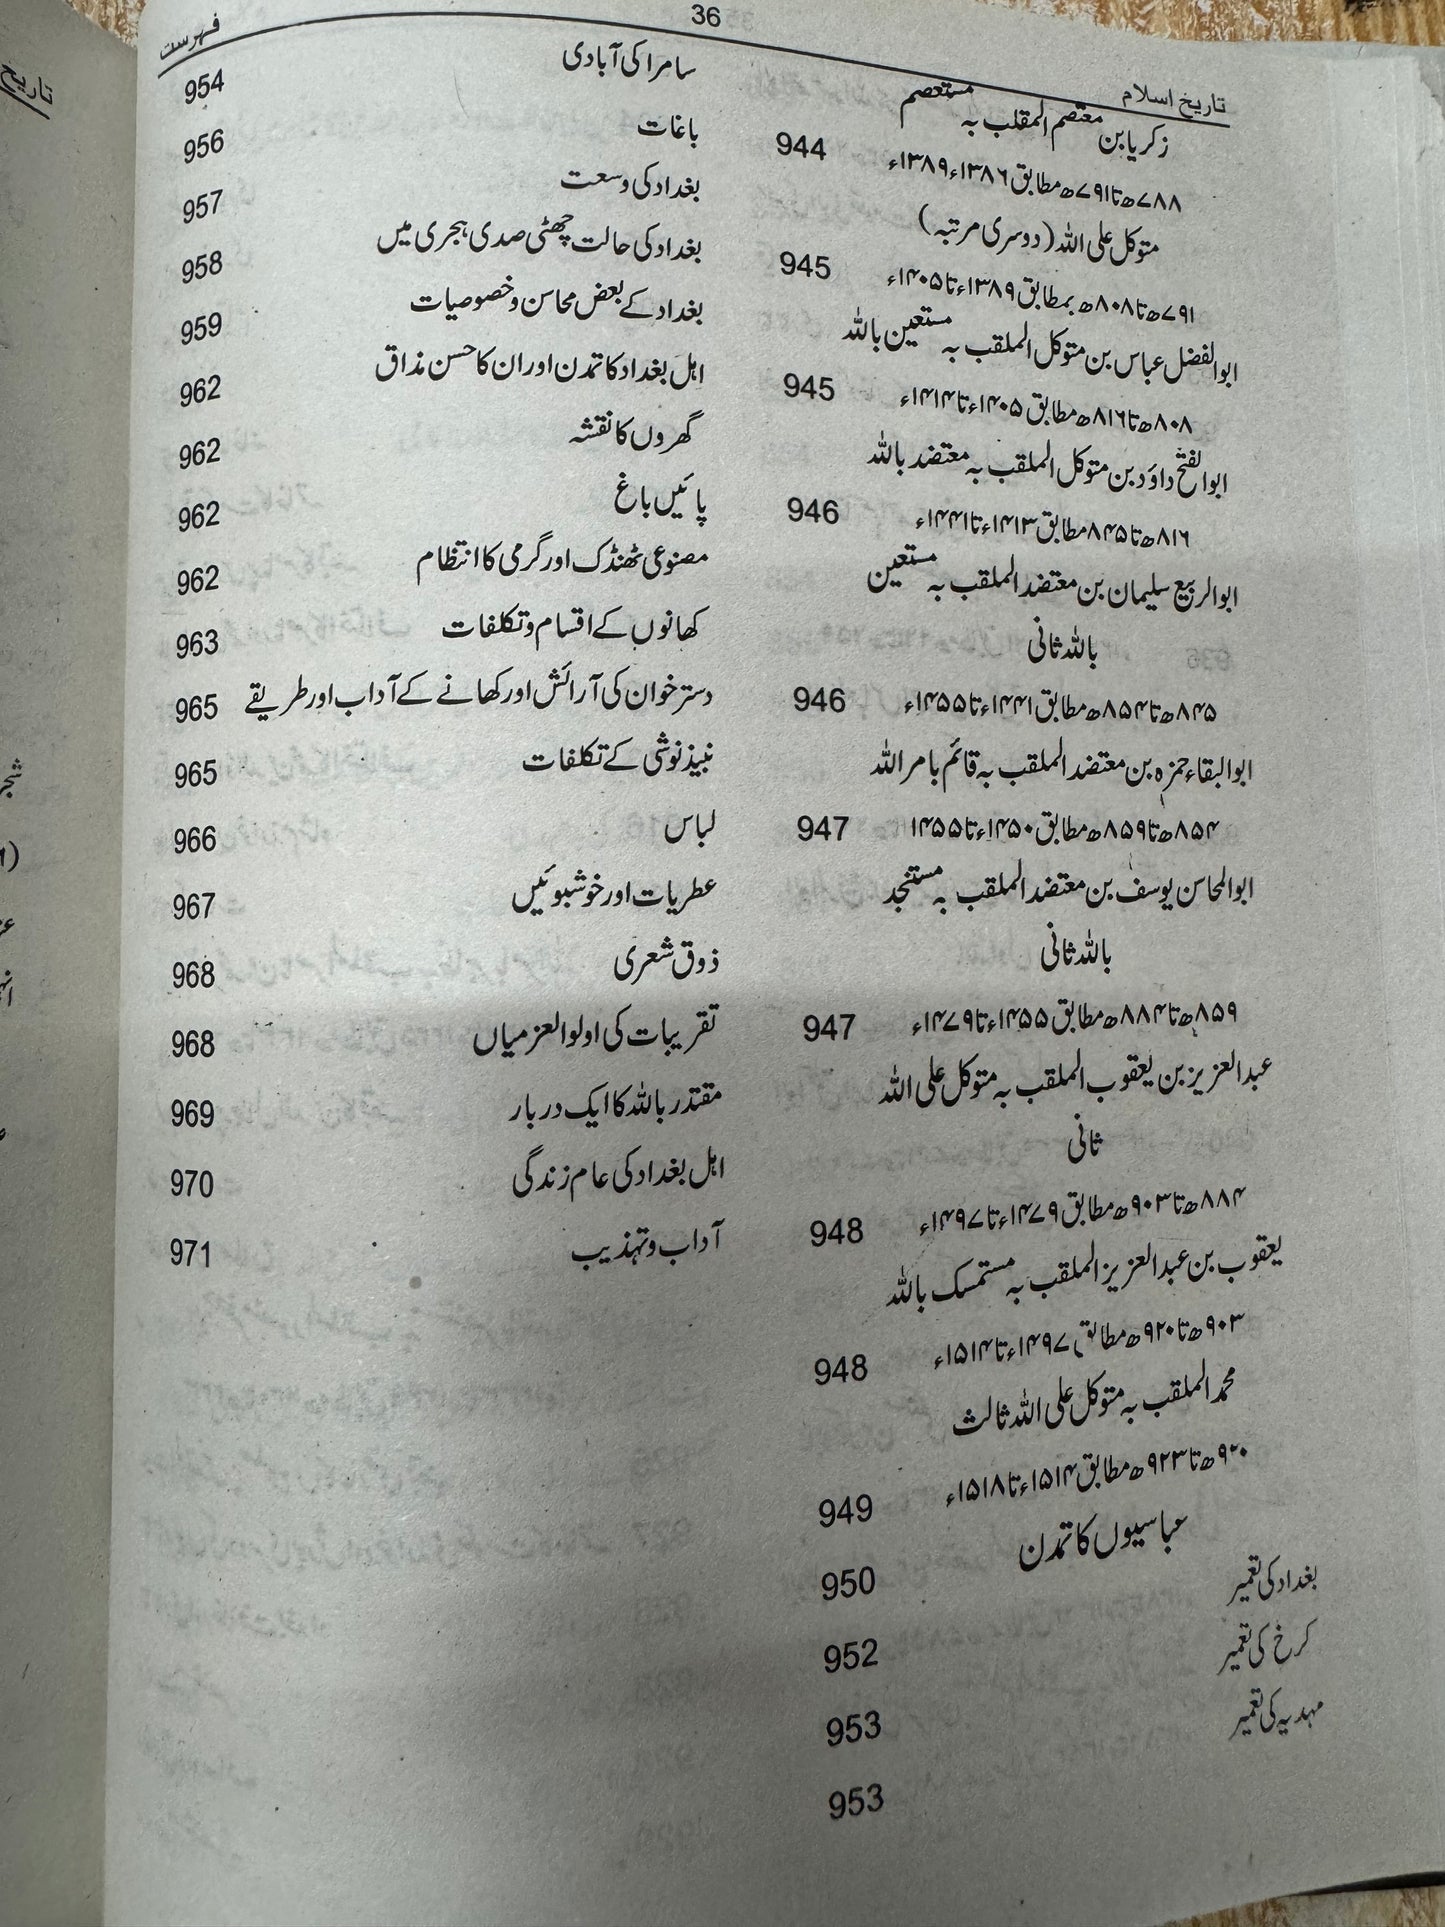 تاریخ اسلام 36 فہرست
زکریا بن معتصم المقلب بہ مستعصم
۷۸۸ھ تا ۷۹۱ھ مطابق ۱۳۸۶ء ۱۳۸۹ء 944
متوکل علی اللہ (دوسری مرتبہ)
۷۹۱ھ تا ۸۰۸ھ بمطابق ۱۳۸۹ء تا ۱۴۰۵ء 945
ابوالفضل عباس بن متوکل الملقب بہ مستعین باللہ
۸۰۸ھ تا ۸۱۶ھ مطابق ۱۴۰۵ء تا ۱۴۱۴ء 945
ابوالفتح داؤد بن متوکل الملقب بہ معتضد باللہ
۸۱۶ھ تا ۸۴۵ مطابق ۱۴۱۳ء تا ۱۴۴۱ء 946
ابوالربیع سلیمان بن معتضد الملقب بہ مستعین
باللہ ثانی
۸۴۵ھ تا ۸۵۴ھ مطابق ۱۴۴۱ء تا ۱۴۵۵ء 946
ابوالبقاء حمزہ بن معتضد الملقب بہ قائم بامر اللہ
۸۵۴ھ تا ۸۵۹ھ مطابق ۱۴۵۰ء تا ۱۴۵۵ 947
ابوالمحاسن یوسف بن معتضد الملقب بہ مستنجد
باللہ ثانی
۸۵۹ھ تا ۸۸۴ھ مطابق ۱۴۵۵ء تا ۱۴۷۹ء 947
عبدالعزیز بن یعقوب الملقب بہ متوکل علی اللہ
ثانی
۸۸۴ھ تا ۹۰۳ھ مطابق ۱۴۷۹ء تا ۱۴۹۷ء 948
یعقوب بن عبدالعزیز الملقب بہ مستمسک باللہ
۹۰۳ھ تا ۹۲۰ھ مطابق ۱۴۹۷ء تا ۱۵۱۴ء 948
محمد الملقب بہ متوکل علی اللہ ثالث
۹۲۰ھ تا ۹۲۳ھ مطابق ۱۵۱۴ء تا ۱۵۱۸ء 949
عباسیوں کا تمدن 950
بغداد کی تعمیر 952
کرخ کی تعمیر 953
مہدیہ کی تعمیر 953
سامرا کی آبادی 954
باغات 956
بغداد کی وسعت 957
بغداد کی حالت چھٹی صدی ہجری میں 958
بغداد کے بعض محاسن و خصوصیات 959
اہل بغداد کا تمدن اور ان کا حسن مذاق 962
گھروں کا نقشہ 962
پائیں باغ 962
مصنوعی ٹھنڈک اور گرمی کا انتظام 962
کھانوں کے اقسام و تکلفات 963
دسترخوان کی آرائش اور کھانے کے آداب اور طریقے 965
نبیذ نوشی کے تکلفات 965
لباس 966
عطریات اور خوشبوئیں 967
ذوق شعری 968
تقریبات کی اولوالعزمیاں 968
مقتدر باللہ کا ایک دربار 969
اہل بغداد کی عام زندگی 970
آداب و تہذیب 971
تاریخ